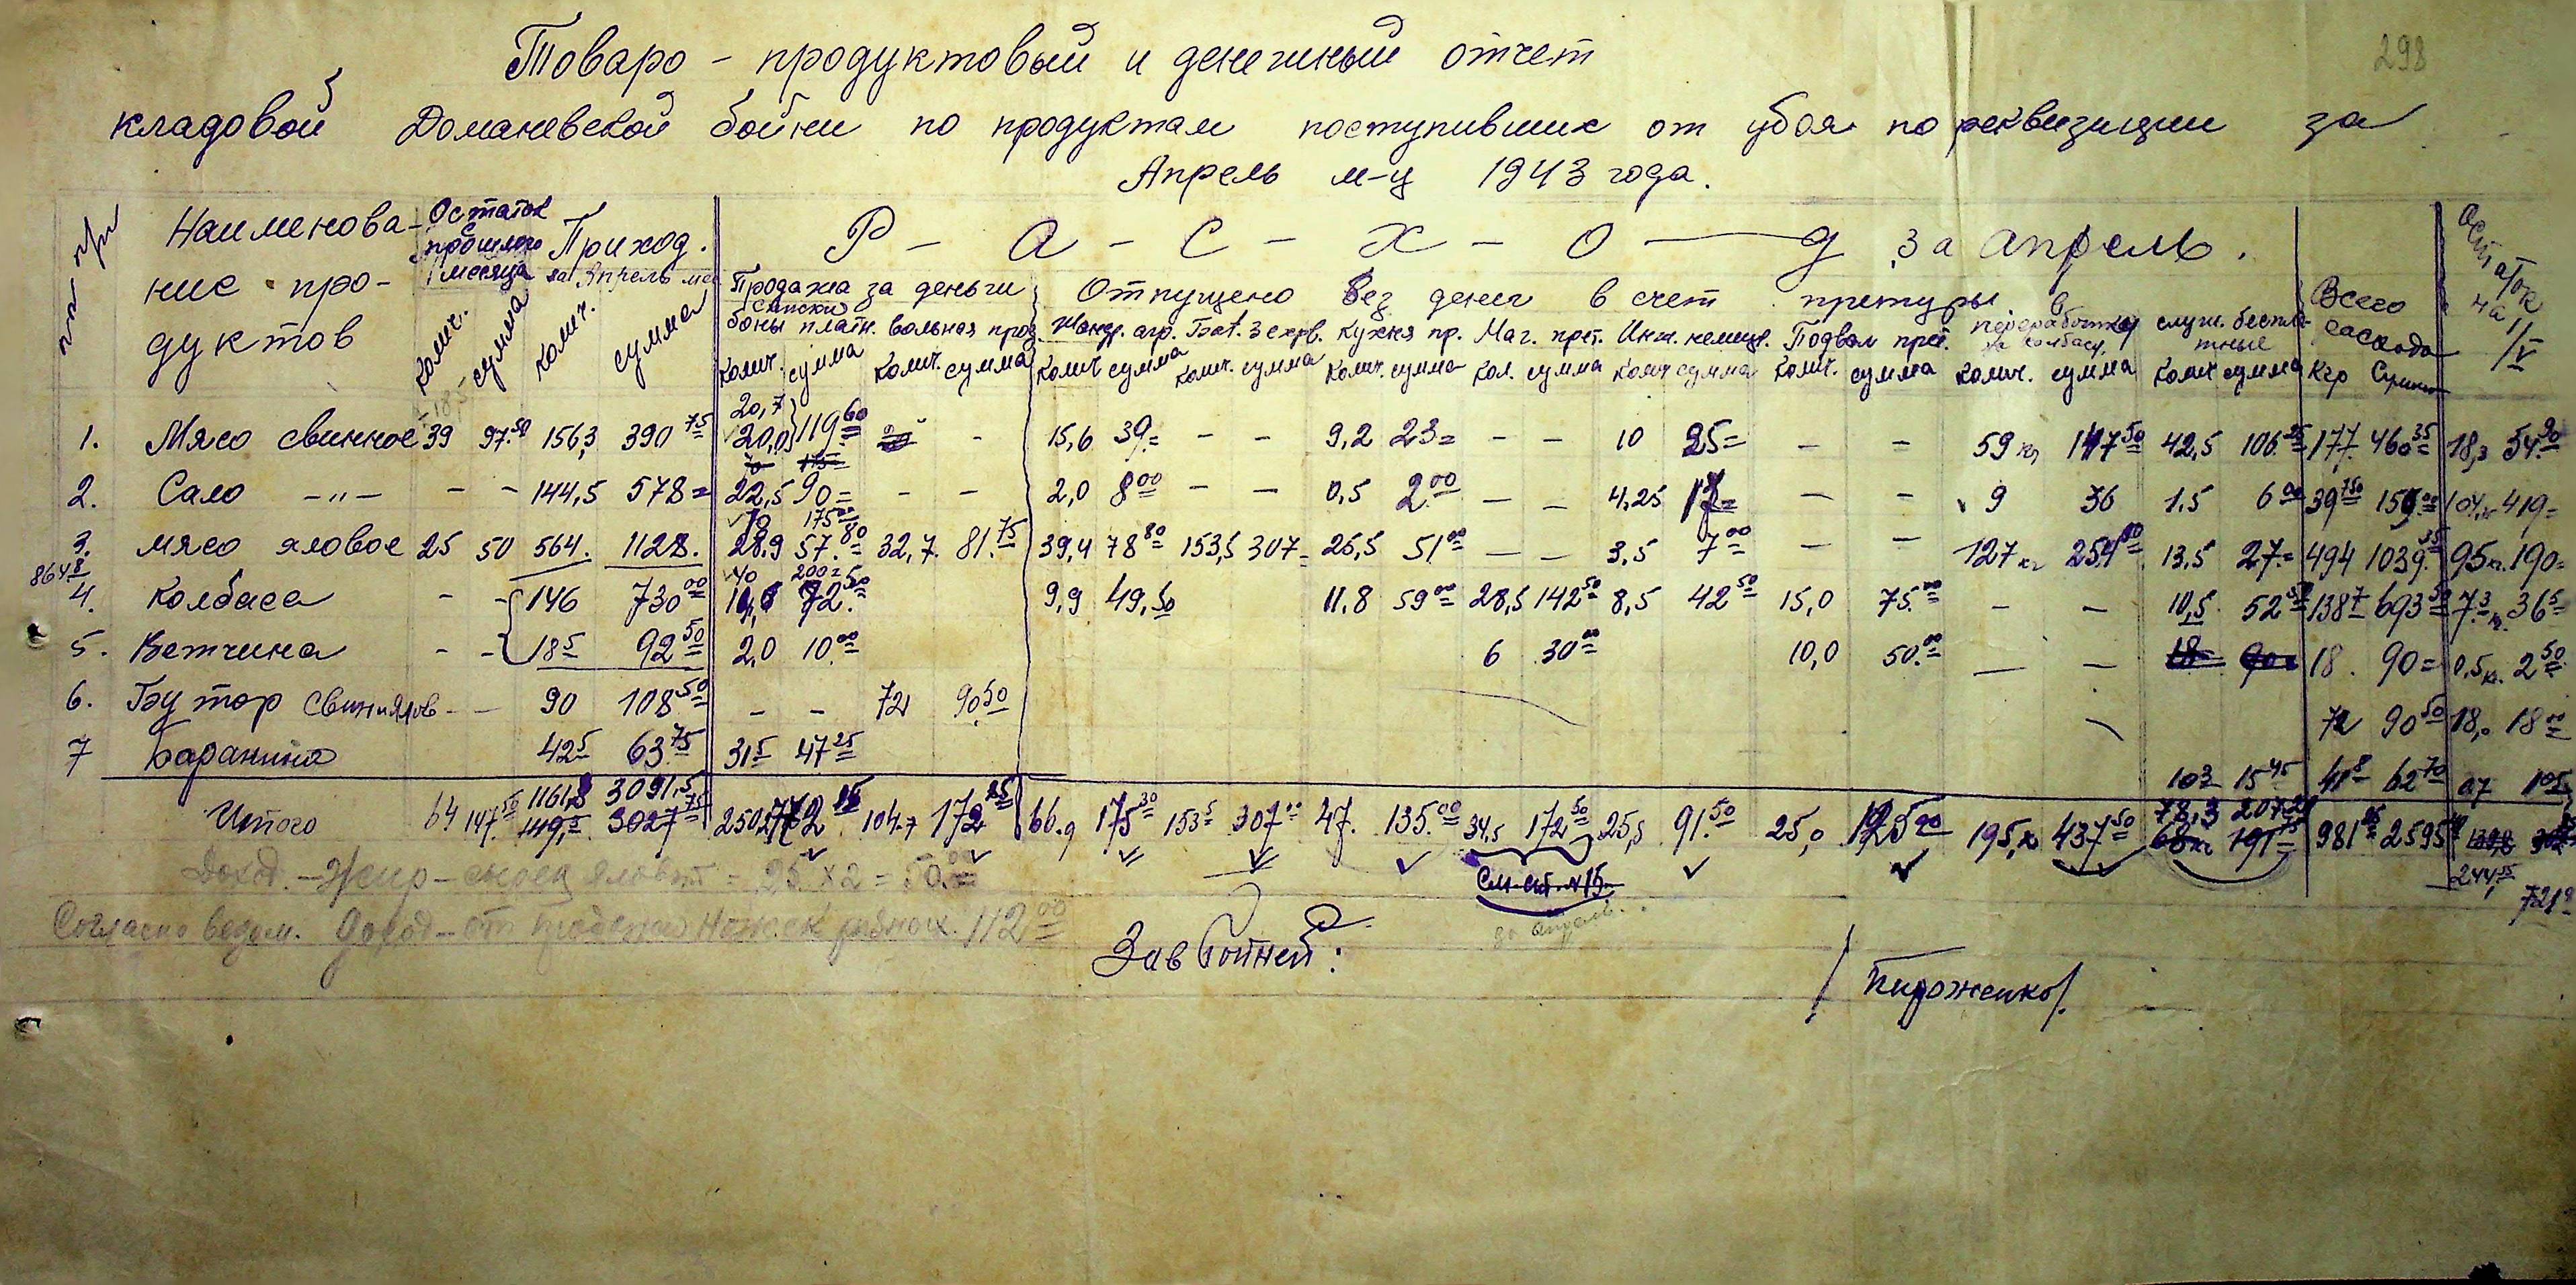 298
Товаро - продуктовый и денежный отчет
кладовой Доманевской бойни по продуктам поступивших от убоя по реквизиции за
Апрель м-ц 1943 года.
Наименова-
ние про-
дуктов
Остаток
прошлого
месяца
колич. сумма
Приход.
за Апрель мес
колич. сумма
Р - а - с - х - о - д за апрель.
Продажа за деньги
списки
боны платн. вольная прод.
колич. сумма колич. сумма
Отпущено без денег в счет претуры
Жанд. агр. Бат. 3 Кухня пр. Маг. прет. Инж. немецк. Подвал прет.
колич сумма колич. сумма колич. сумма кол. сумма колич сумма колич. сумма
в
переработку
на колбасу
колич. сумма
служ. беспла-
тные
колич сумма
Всего
расхода
кгр Сумма
Остаток
на
1/V
1. Мясо свинное 39 97.50 156,3 390 75 20,7 20,0 119 60 - 15,6 39= - - 9,2 23= - - 10 25= - - 59 кг 147 50 42,5 106 25 177 460 35 18,3 54 90
2. Сало -"- - - 144,5 578= 22,5 90= - - 2,0 8 00 - - 0,5 2 00 - - 4,25 17= - - 9 36 1,5 6 00 39 750 159 00 419=
70 175 00
3. Мясо яловое 25 50 564. 1128. 28.9 57.80 32,7. 81.75 39,4 78 80 153,5 307= 25,5 51 00 - - 3,5 7 00 - - 127 кг 254 00 13,5 27= 494 1039.35 95 кг. 190=
8648
40 200=
4. Колбаса - - 146 730 00 72.50 9,9 49,50 11.8 59 00 28,5 142 50 8,5 42 50 15,0 75.00 - - 10,5 52 50 138 7 693 50 7.3 к. 36 5
5. Ветчина - - 18 5 92 50 2,0 10.00 6 30 00 10,0 50.00 - - 18. 90= 0,5 к. 2 50
6. Бутор свин и ялов - - 90 108 50 - - 72 90 50 72 90 50 18,0 18 00
7 Баранина 42 5 63 75 31 5 47 25 10 3 15 45 41 8 62 70 07 105
1161,8 3091,5 78,3 207 20
Итого 64 147.50 3027 75 104.7 172 25 66.9 175 30 153 5 307 00 47. 135.00 34,5 172 50 25,5 91.50 25,0 125 00 195, к 437 50 981 2595
244 55
721
Доход. - Жир - сырец яловый = 25 x 2 = 50.00
Согласно ведом. Доход - от продажи Ножек разных. 112 00
за апрель.
Зав бойней:
/Пироженко/.